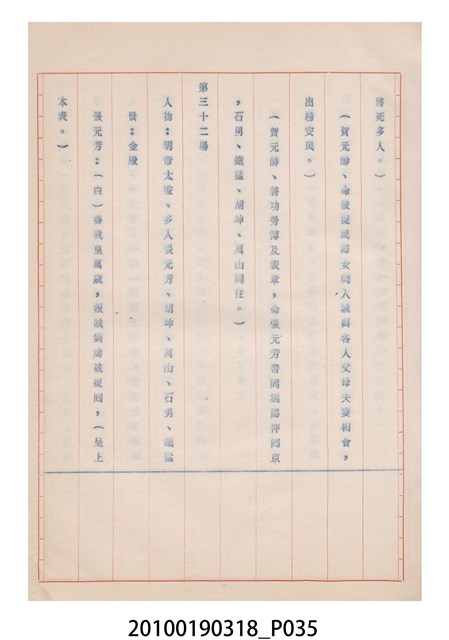 將死多人。）
（賀元帥、命彼從民婦女開入誠與各人父母夫妻相會，
出榜安民。）
（賀元帥、將功勞簿及表章，命張元芳帶同獨露押囘京
，石勇、鐵猛、胡坤、萬山同住。）
第三十二場
人物：明帝太監、多人張元芳、胡坤、萬山、石勇、鐵猛
景：金殿
張元芳：（白）啓我皇萬歲，叛賊獨虜被捉囘，（呈上
本表。）
20100190318_P035